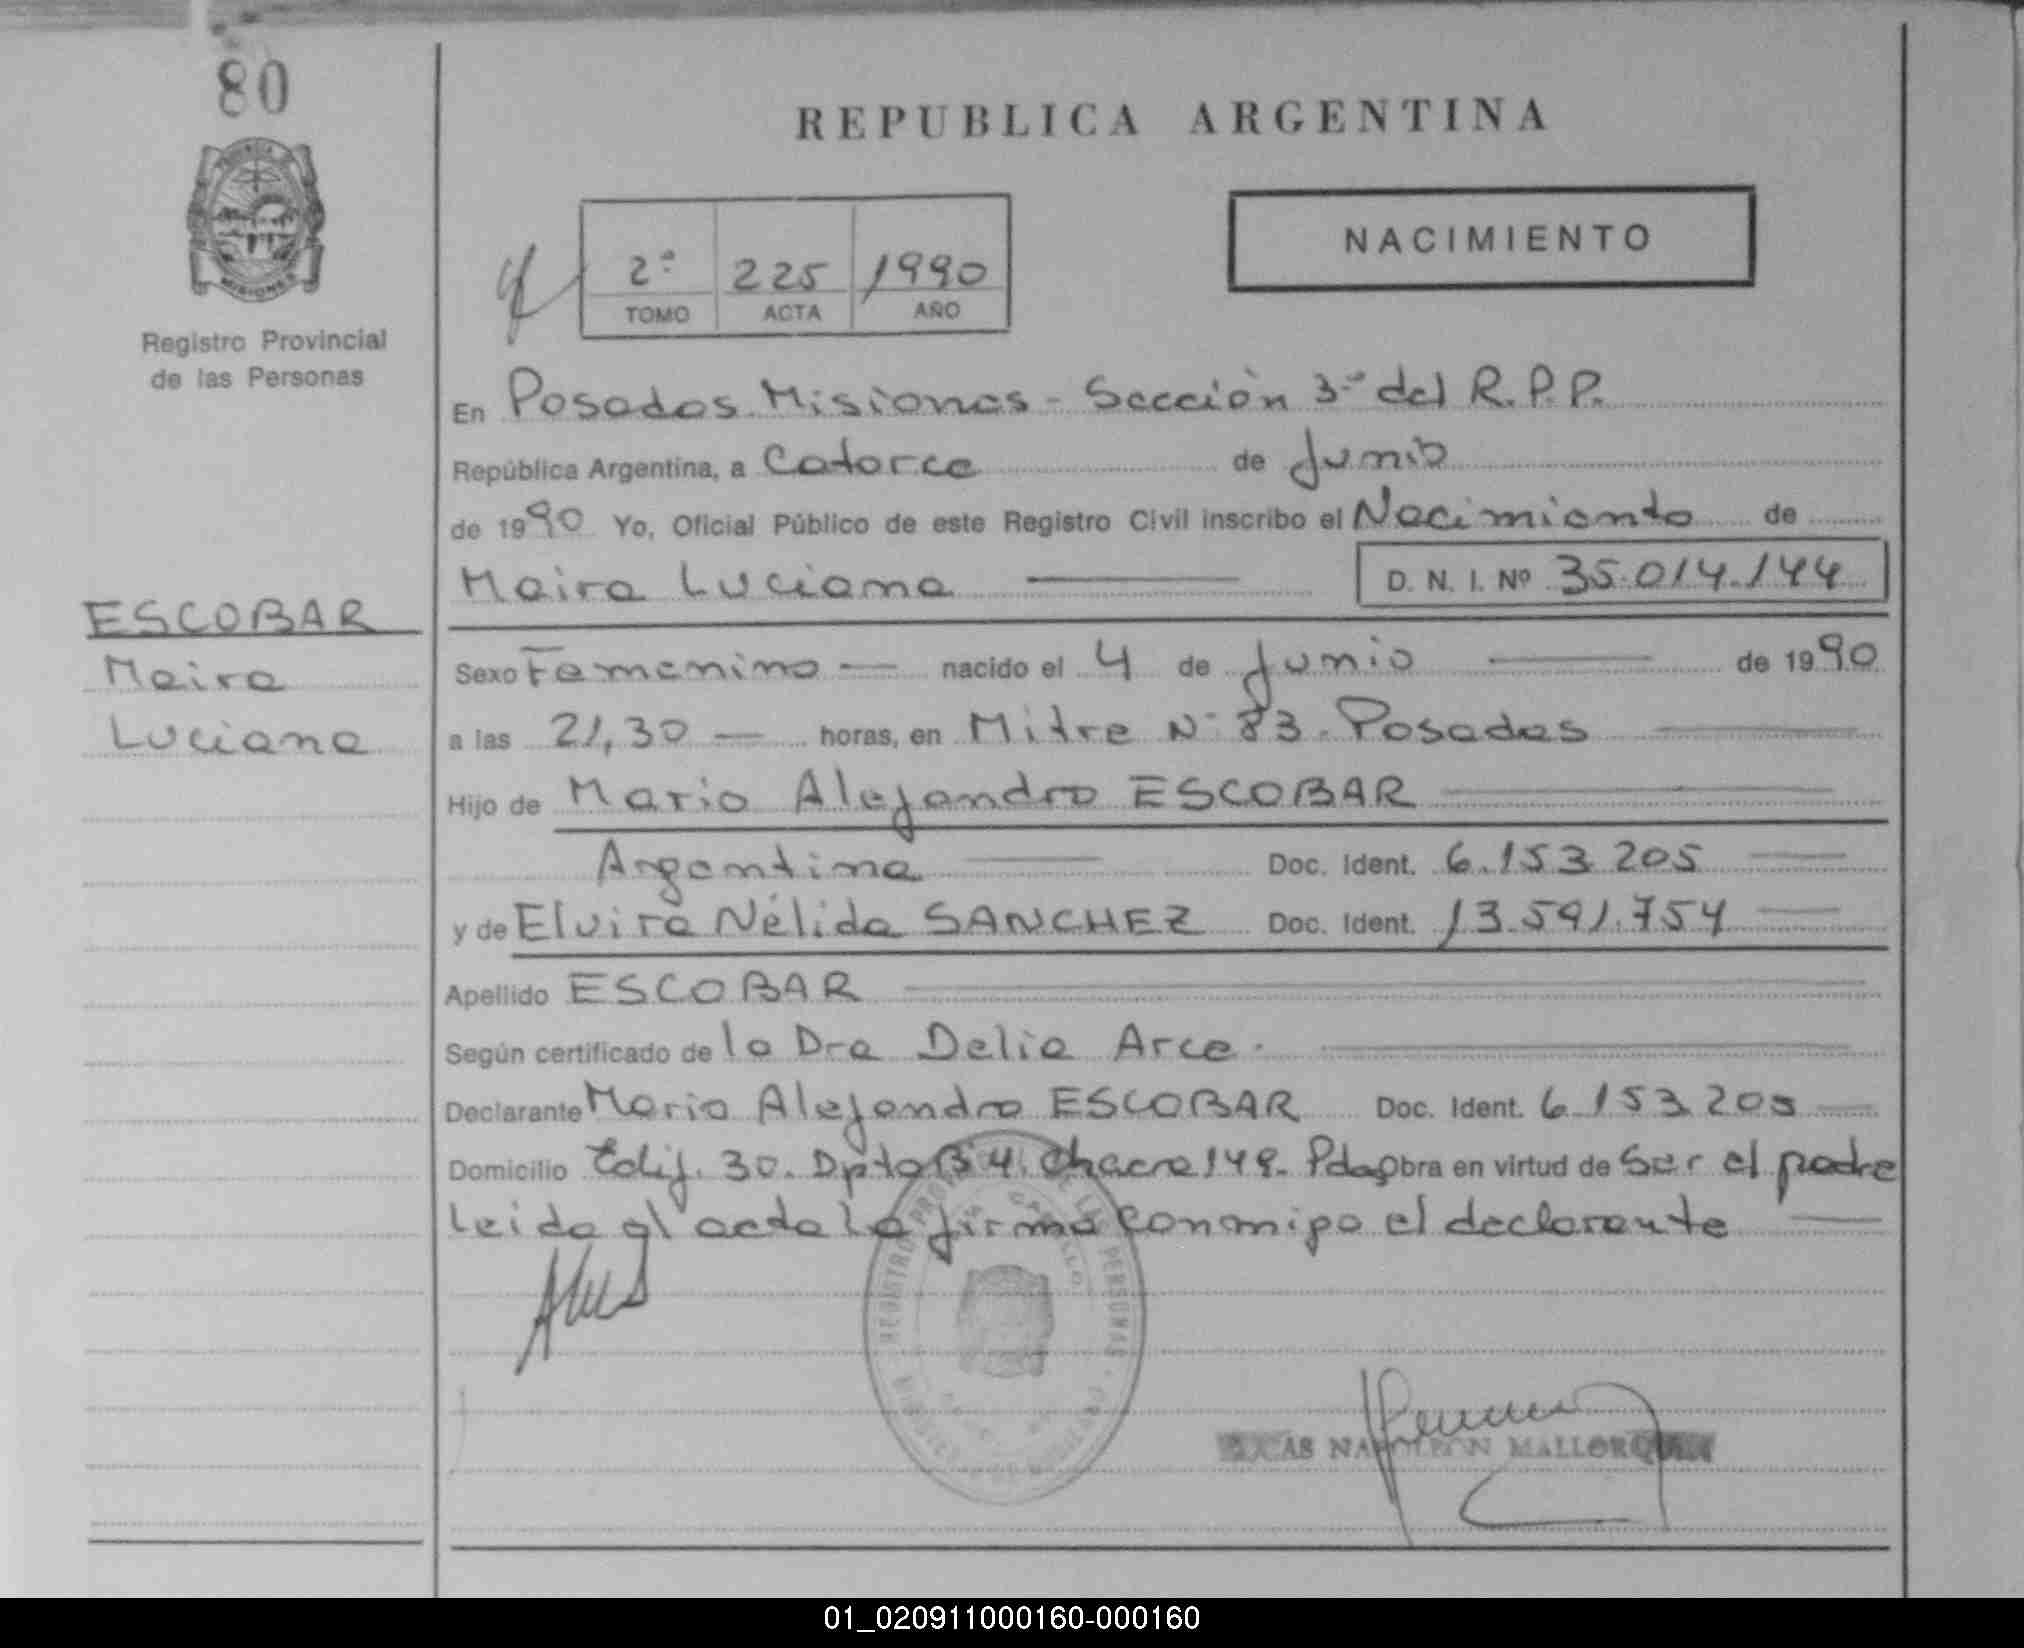 80
REPUBLICA ARGENTINA
NACIMIENTO
2ª 225 1990
TOMO ACTA AÑO
Registro Provincial
de las Personas
En Posadas Misiones - Sección 3ª del R.P.P.
República Argentina, a Catorce de Junio
de 1990 Yo, Oficial Público de este Registro Civil inscribo el Nacimiento de
Maira Luciana D. N. I. Nº 35.014.144
ESCOBAR
Maira
Luciana
Sexo Femenino nacido el 4 de Junio de 1990
a las 21,30 horas, en Mitre Nº 83. Posadas
Hijo de Mario Alejandro ESCOBAR
Argentina Doc. Ident. 6.153.205
y de Elvira Nélida SANCHEZ Doc. Ident. 13.591.754
Apellido ESCOBAR
Según certificado de la Dra Delia Arce.
Declarante Mario Alejandro ESCOBAR Doc. Ident. 6.153.205
Domicilio Edif. 30. Dpto B 4. Chacra 149. Pdas Obra en virtud de Ser el padre
Leida el acta la firma conmigo el declarante
REGISTRO PROVINCIAL DE LAS PERSONAS
LUCAS NAPOLEON MALLORQUIN
01_020911000160-000160